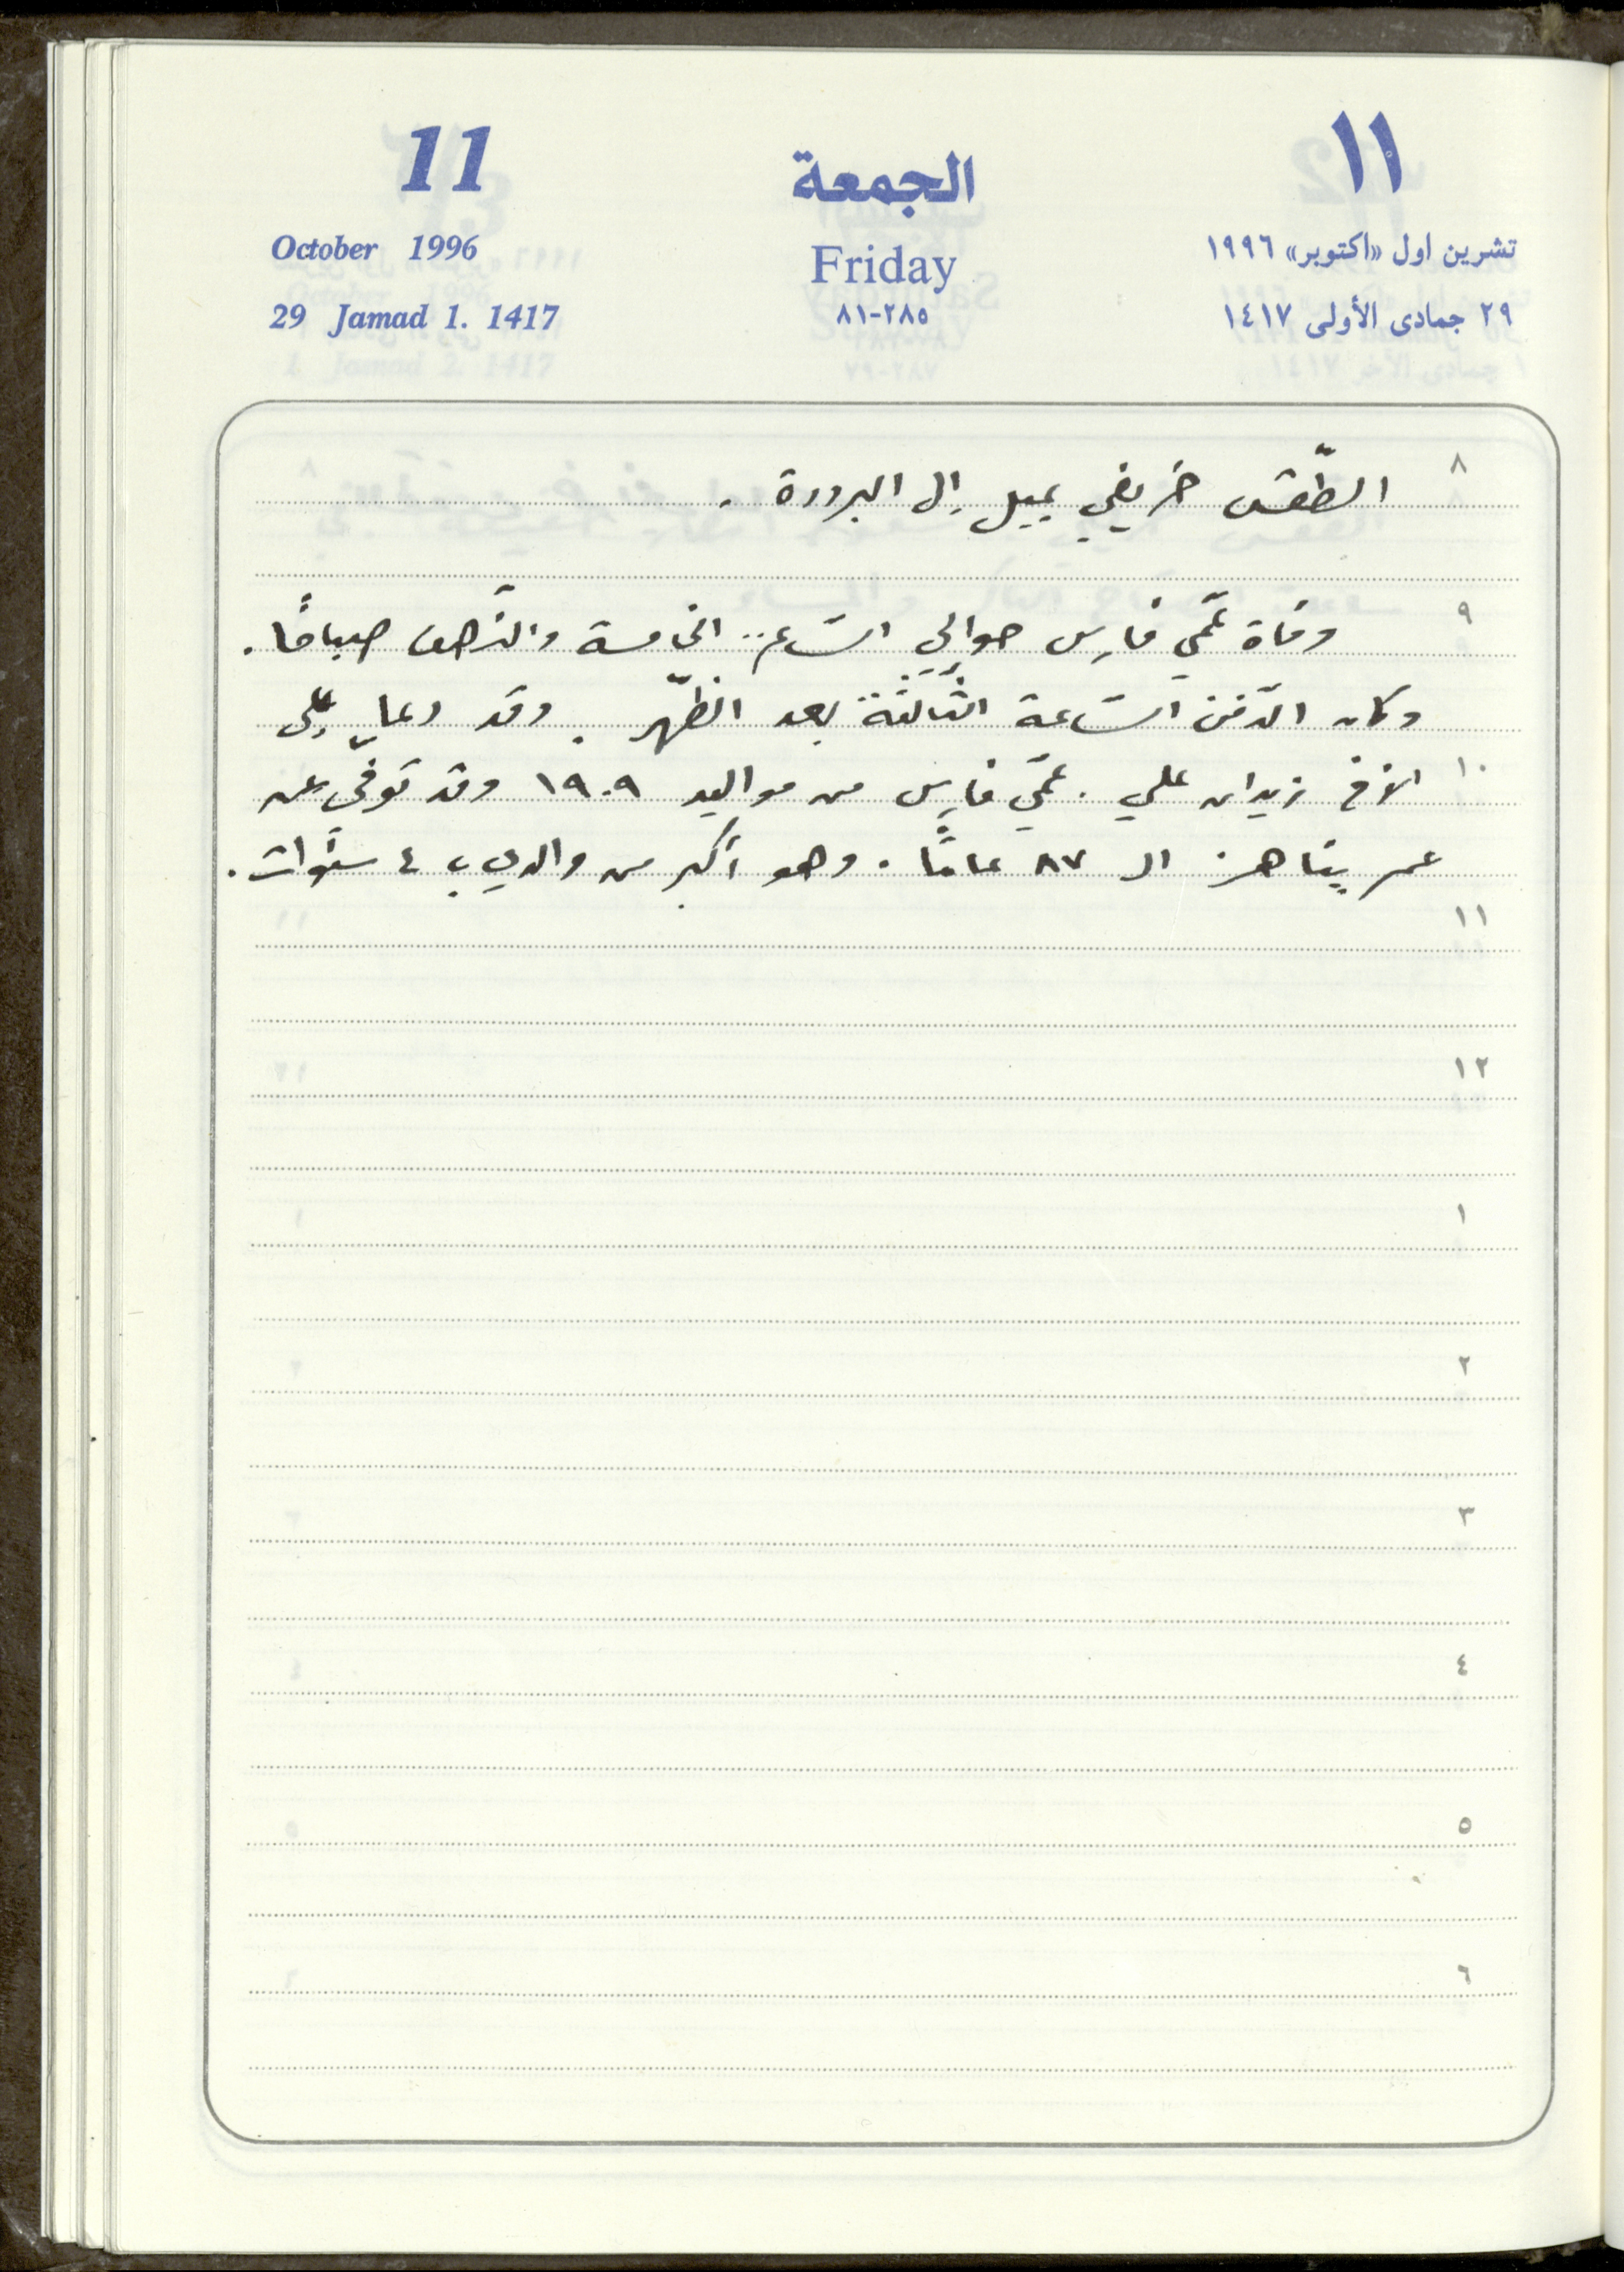 11
الجمعة
١١
October 1996
Friday
تشرين اول «اكتوبر» ١٩٩٦
29 Jamad 1. 1417
٢٨٥-٨١
٢٩ جمادى الأولى ١٤١٧
٨
الطّقس خريفي يميل إلى البرودة .
٩
وفاة عمّي فارس حوالي السّاعة الخامسة والنّصف صباحًا .
وكان الدّفن السّاعة الثّالثة بعد الظّهر . وقد
١٠
الأخ زيدان علي . عمّي فارس من مواليد ١٩٠٩ وقد توفّي عن
عمر يناهز الـ ٨٧ عامًا . وهو أكبر من والدي بـ ٤ سنوات .
١١
١٢
١
٢
٣
٤
٥
٦